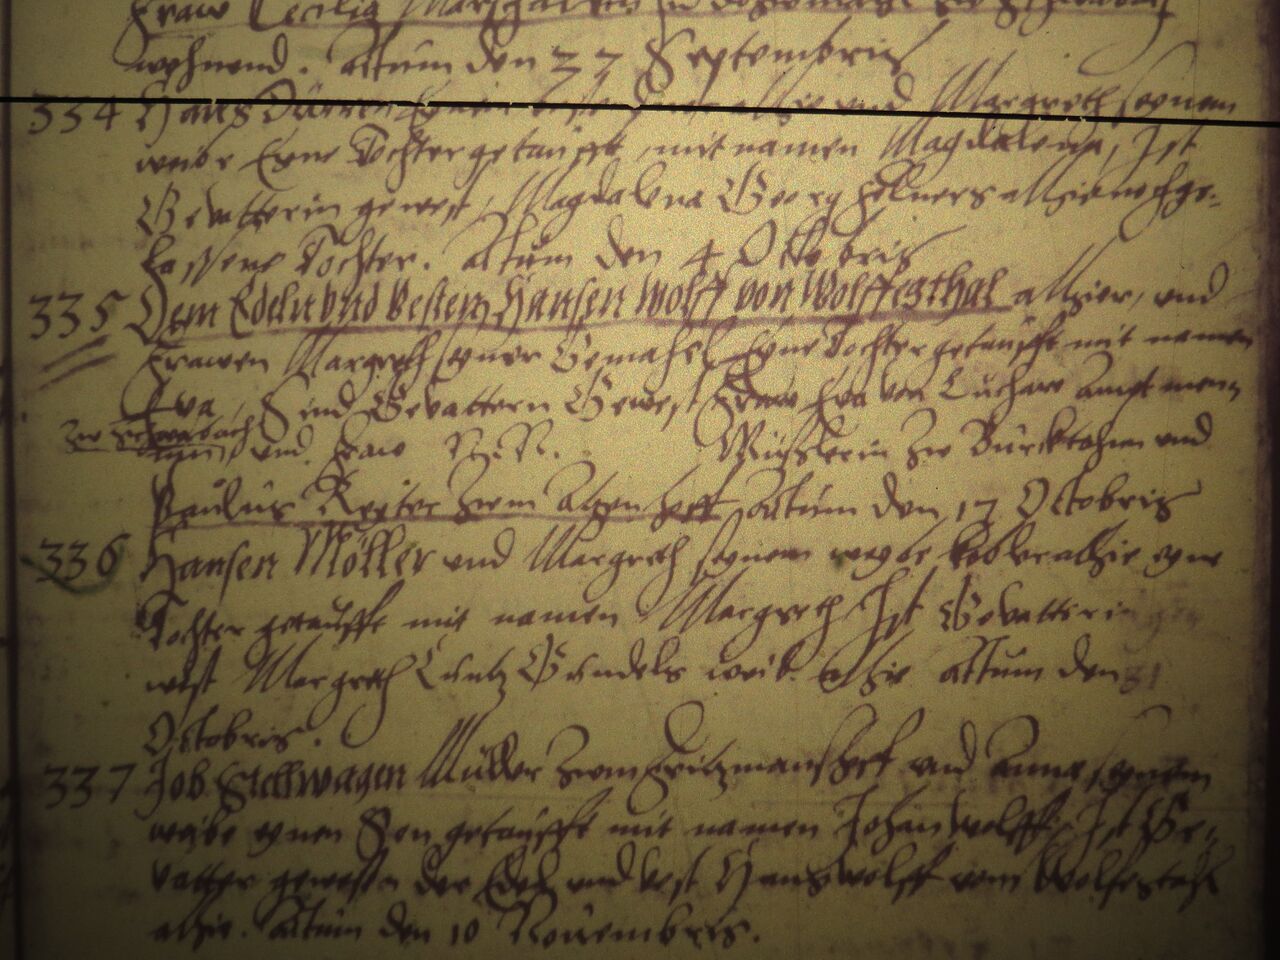 Fraw Cecilia
wohnend. Actum den 27 Septembris
334 Hans und Margreth seynem
weibe Eyne Tochter getaufft, mit namen Magdalena, Ist
Gevatterin gewest, Magdalena Georg allhie nachge-
lassene Tochter. Actum den 4 Octobris
335 Dem Edeln vnd Vesten Hansen Wolff von Wolffesthal alhier, vnd
Frawen Margreth seyner Gemahel Eyne Tochter getaufft mit namen
Eva, Sind Gevattern Gewest Fraw Eva von Luchaw Ampt menn
zu Schwabach
und Fraw N. N. zu Burckthann vnd
Paulus Reyter zum Actum den 17 Octobris
336 Hansen Möller vnd Margreth seynem weybe alhie eyne
Tochter getaufft mit namen Margreth Ist Gevatterin ge
west Margreth Cuntz Gundels weib alhie Actum den 31
Octobris.
337 Job Stellwagen Müller zum vnd Anna seynem
weibe eynen Son getaufft mit namen Johan Wolff, Ist Ge-
vatter gewesen der Edel vnd Vest Hans Wolff vom Wolfestahl
alhie. Actum den 10 Nouembris.